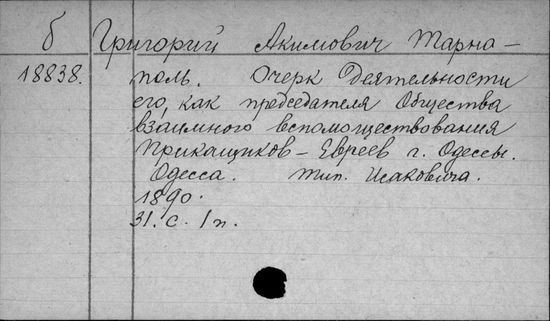 б Григорий Акимович Тарна-
18838. поль. Очерк деятельности
его, как председателя Общества
взаимного вспомоществования
Прикащиков-Евреев г. Одессы.
Одесса. Тип. Исаковича.
1890.
31. с. 1 п.